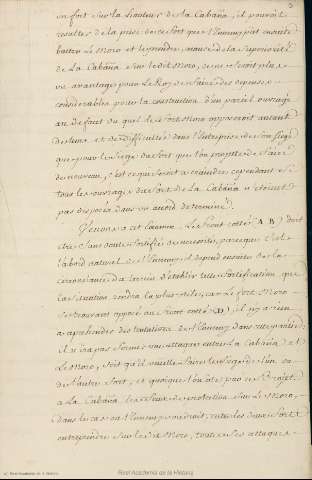 un fort sur la hauteur de la Cabaña, il pouroit
resulter de la prise de ce fort que l'Ennemy put ensuite
battre Le Moro et le prendre, a cause de la Superiorité
de La Cabaña sur le dit Moro, de ne seroit plus
avantage pour Le Roy de faire des depenses
considerables pour la construction d'un pareil ouvrage
au defaut du quel le fort Moro opposeroit autant
de tems et de difficultés dans l'Entreprise de son siege
que pour le siege du fort que l'on projette de faire
de nouveau, c'est ce qui seroit a craindre cependant si
tous les ouvrages du fort de La Cabaña n'étoient
pas disposés dans un accord determiné.
Venons a cet Examen. Le front cotté A B doit
être sans doute fortifié de necessité, parce que c'est
l'abord naturel de l'Ennemy, il depend ensuite de la
connoissance du terrein d'établir telle fortification que
la situation rendra la plus utile, car Le fort Moro
se trouvant opposé au front cotté CD, il n'y a rien
a aprehender des tentatives de l'Ennemy dans cette partie;
il n'ira pas former une attaque entre La Cabaña et
Le Moro, soit qu'il veuille faire le siege de l'un ou
de l'autre fort, et quoique l'on n'ôte pas
a La Cabaña les feux de protection sur Le Moro,
dans le cas ou l'Ennemy
entreprendre sur le dit Moro, toutes ses attaques
Real Academia de la Historia